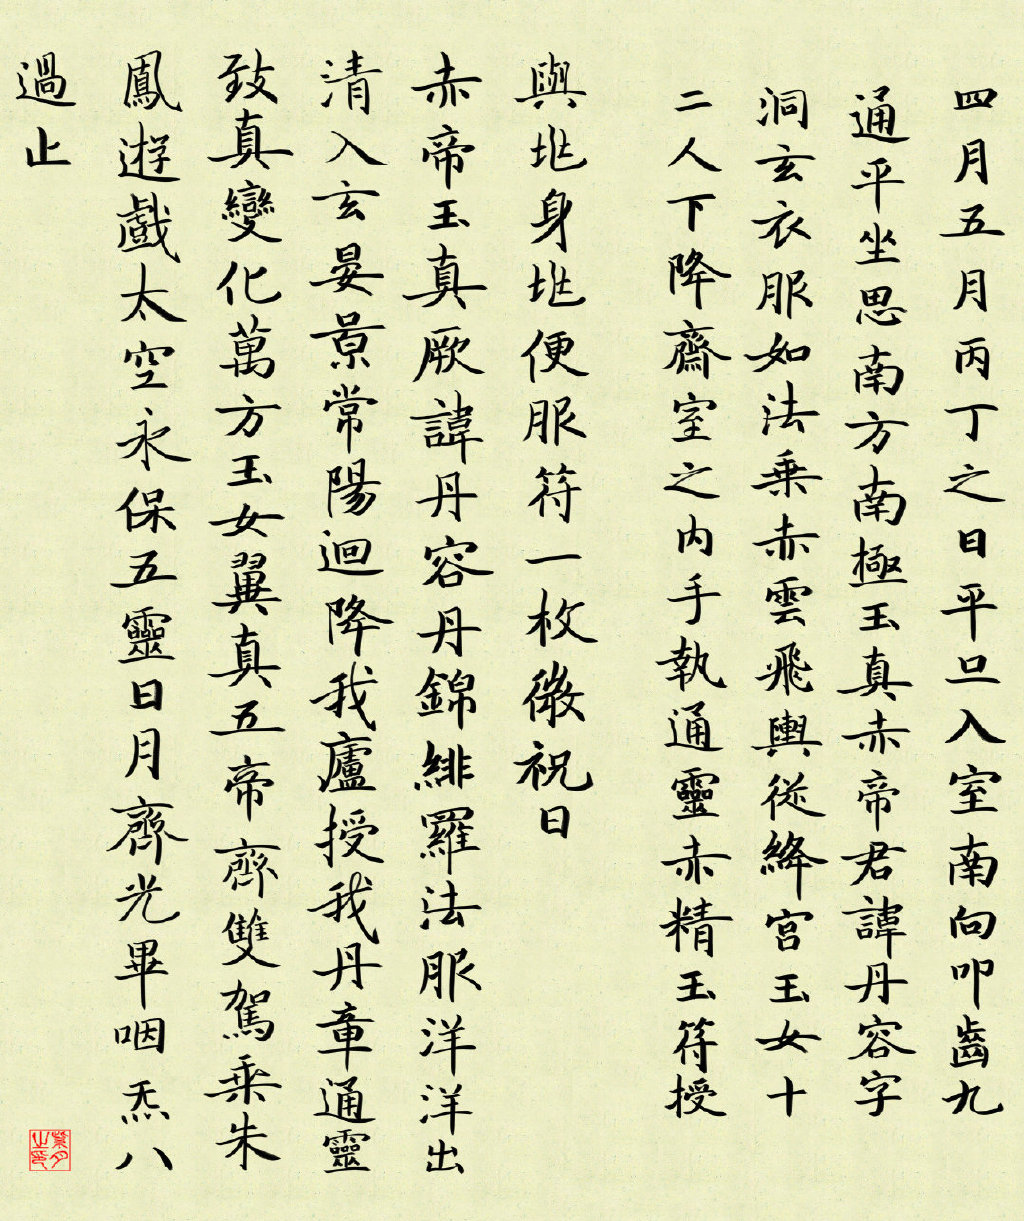 四月五月丙丁之日平旦入室南向叩齒九
通平坐思南方南極玉真赤帝君諱丹容字
洞玄衣服如法乗赤雲飛輿從絳宮玉女十
二人下降齋室之内手執通靈赤精玉符授
與兆身兆便服符一枚微祝曰
赤帝玉真厥諱丹容丹錦緋羅法服洋洋出
清入玄晏景常陽迴降我廬授我丹章通靈
致真變化萬方玉女翼真五帝齊雙駕乗朱
鳳遊戲太空永保五靈日月齊光畢咽炁八
過止